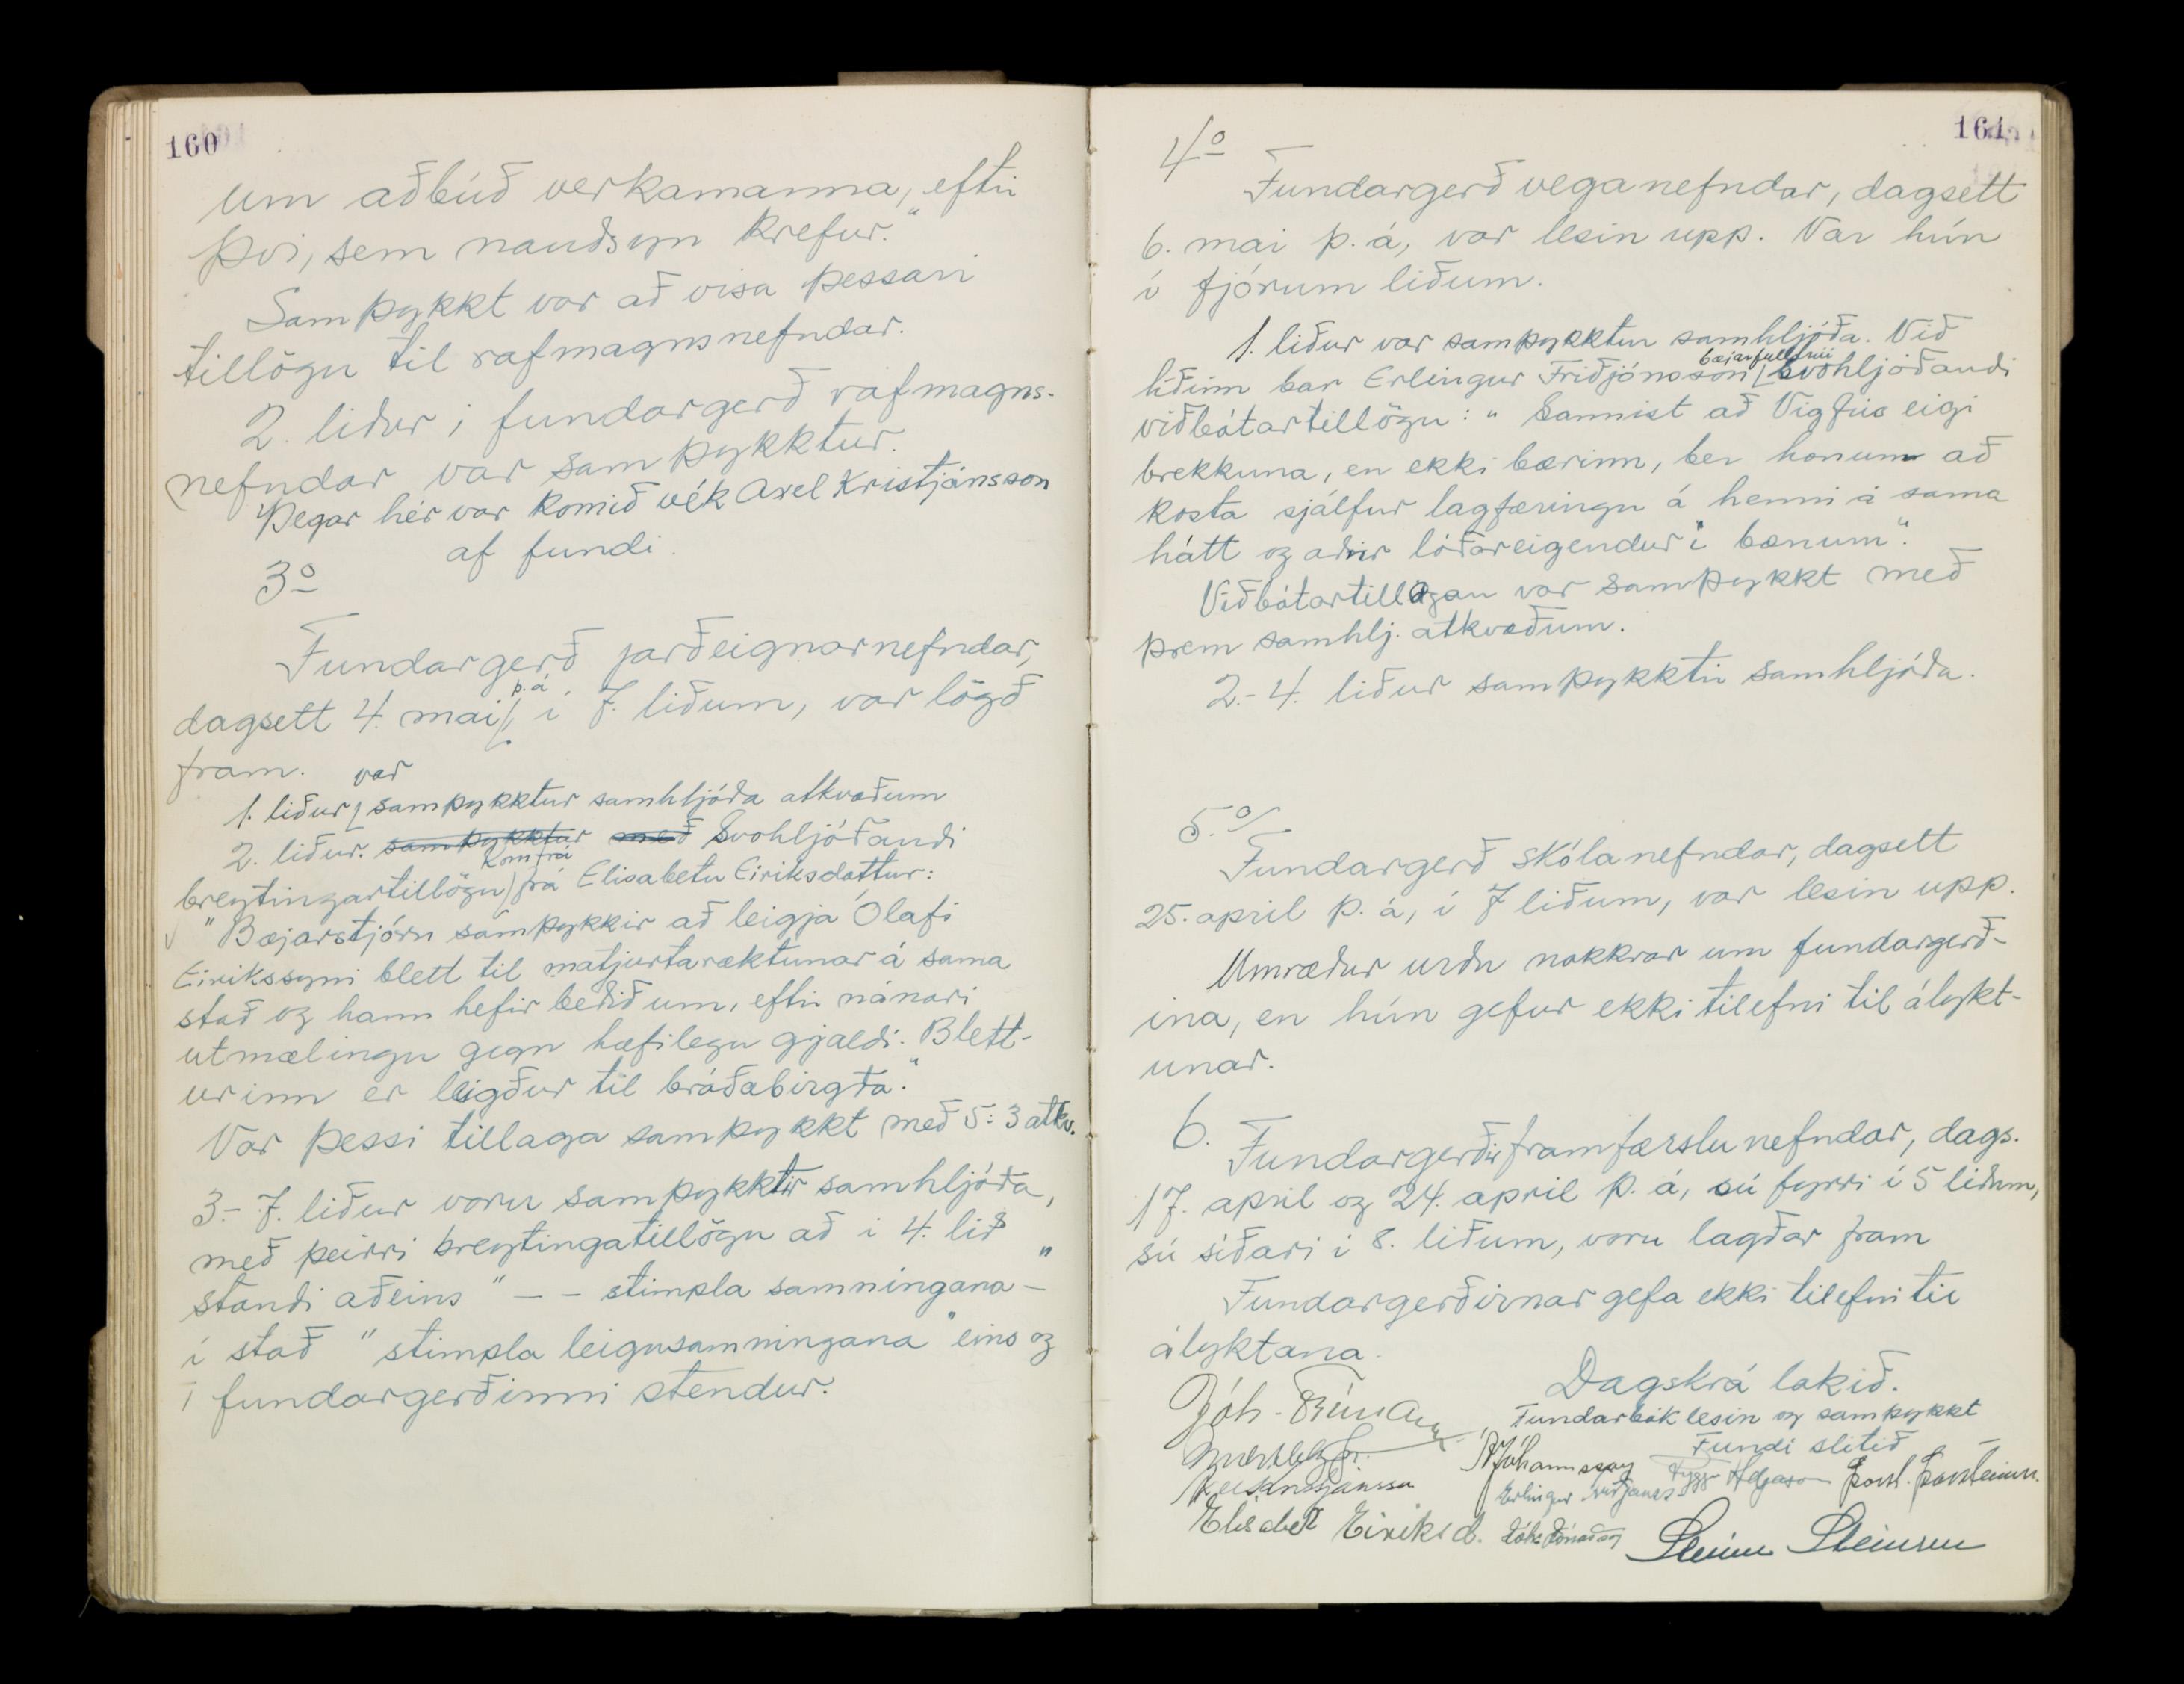 160
um aðbúð verkamanna, eftir
því, sem nauðsyn krefur."
Samþykkt var að vísa þessari
tillögu til rafmagnsnefndar.
2. liður í fundargerð rafmagns-
nefndar var samþykktur.
Þegar hér var komið vék Axel Kristjánsson
af fundi.
3º
Fundargerð jarðeignarnefndar,
dagsett 4. maí þ.á. í 7. liðum, var lögð
fram.
1. liður var samþykktur samhljóða atkvæðum
2. liður. samþykktur með Svohljóðandi
breytingartillögu kom frá frá Elisabetu Eiriksdottur:
"Bæjarstjórn samþykkir að leigja Ólafi
Eirikssyni blett til matjurtaræktunar á sama
stað og hann hefir beðið um, eftir nánari
utmælingu gegn hæfilegu gjaldi. Blett-
urinn er leigður til bráðabirgða."
Var þessi tillaga samþykkt með 5:3 atkv.
3.-7. liður voru samþykktir samhljóða,
með þeirri breytingatillögu að i 4. lið
standi aðeins "-- stimpla samningana -"
í stað "stimpla leigusamningana" eins og
í fundargerðinni stendur.
161
4º
Fundargerð veganefndar, dagsett
6. mai þ.á, var lesin upp. Var hún
í fjórum liðum.
1. liður var samþykktur samhljóða. Við
liðinn bar Erlingur Friðjónsson bæjarfulltrúi svohljóðandi
viðbótartillögu: "Sannist að Vigfús eigi
brekkuna, en ekki bærinn, ber honum að
kosta sjálfur lagfæringu á henni á sama
hátt og aðrir lóðareigendur í bænum".
Viðbótartillagan var samþykkt með
þrem samhlj. atkvæðum.
2.-4. liður samþykktir samhljóða.
5.º
Fundargerð skólanefndar, dagsett
25. april þ.á, í 7 liðum, var lesin upp.
Umræður urðu nokkrar um fundargerð-
ina, en hún gefur ekki tilefni til álykt-
unar.
6.
Fundargerðir framfærslunefndar, dags.
17. april og 24. april þ. á, sú fyrri í 5 liðum,
sú síðari í 8. liðum, voru lagðar fram
Fundargerðirnar gefa ekki tilefni til
ályktana.
Dagskrá lokið.
Fundarbók lesin og samþykkt
Fundi slitið
Jóh. Frímann
Jóhannsson Tryggvi Helgason Þorst. Þorsteinss.
Erlingur Friðjónss
Elísabet Eiríksd. Steinn Steinsen